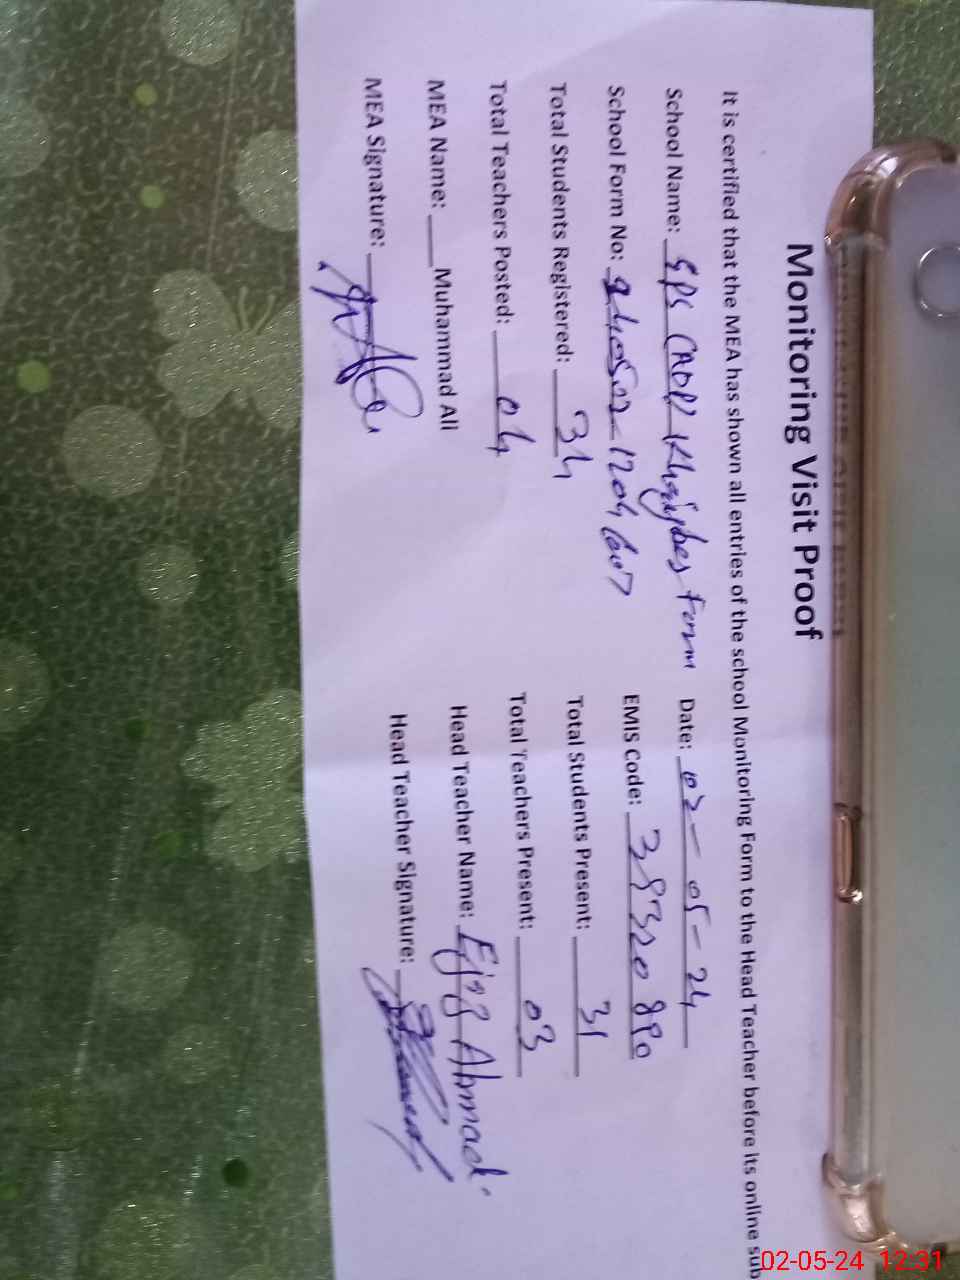 Monitoring Visit Proof
It is certified that the MEA has shown all entries of the school Monitoring Form to the Head Teacher before its online sub
School Name: GPS Khaiybes Form Date: 02-05-24
School Form No: EMIS Code: 38320 890
Total Students Registered: 34 Total Students Present: 31
Total Teachers Posted: 04 Total Teachers Present: 03
MEA Name: Muhammad Ali Head Teacher Name: Ejaz Ahmad.
MEA Signature: Head Teacher Signature:
02-05-24 12:31